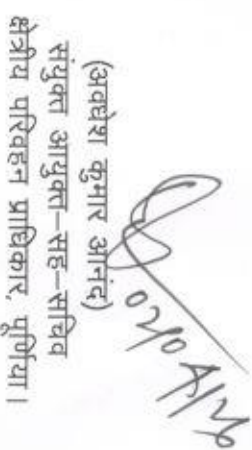 02/04/26
(अवधेश कुमार आनंद)
संयुक्त आयुक्त-सह-सचिव
क्षेत्रीय परिवहन प्राधिकार, पूर्णिया।